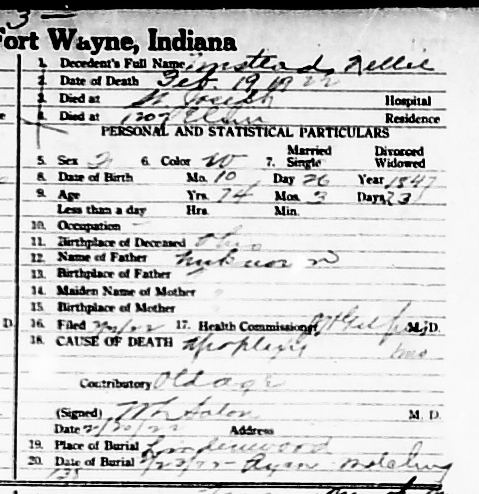 3
Fort Wayne, Indiana
1. Decedent's Full Name Nellie
2. Date of Death Feb. 19 1922
3. Died at St Joseph Hospital
4. Died at 1207 Elm Residence
PERSONAL AND STATISTICAL PARTICULARS
5. Sex F 6. Color W 7. Married Single Divorced Widowed
8. Date of Birth Mo. 10 Day 26 Year 1847
9. Age Yrs. 74 Mos. 3 Days 23
Less than a day Hrs. Min.
10. Occupation
11. Birthplace of Deceased Ohio
12. Name of Father unknown
13. Birthplace of Father
14. Maiden Name of Mother
15. Birthplace of Mother
D. 16. Filed 2/22 17. Health Commissioner M. D.
18. CAUSE OF DEATH Apoplexy
Contributory Old age
(Signed) M. D.
Date 2/20/22 Address
19. Place of Burial Lindenwood
20. Date of Burial 2/23/22